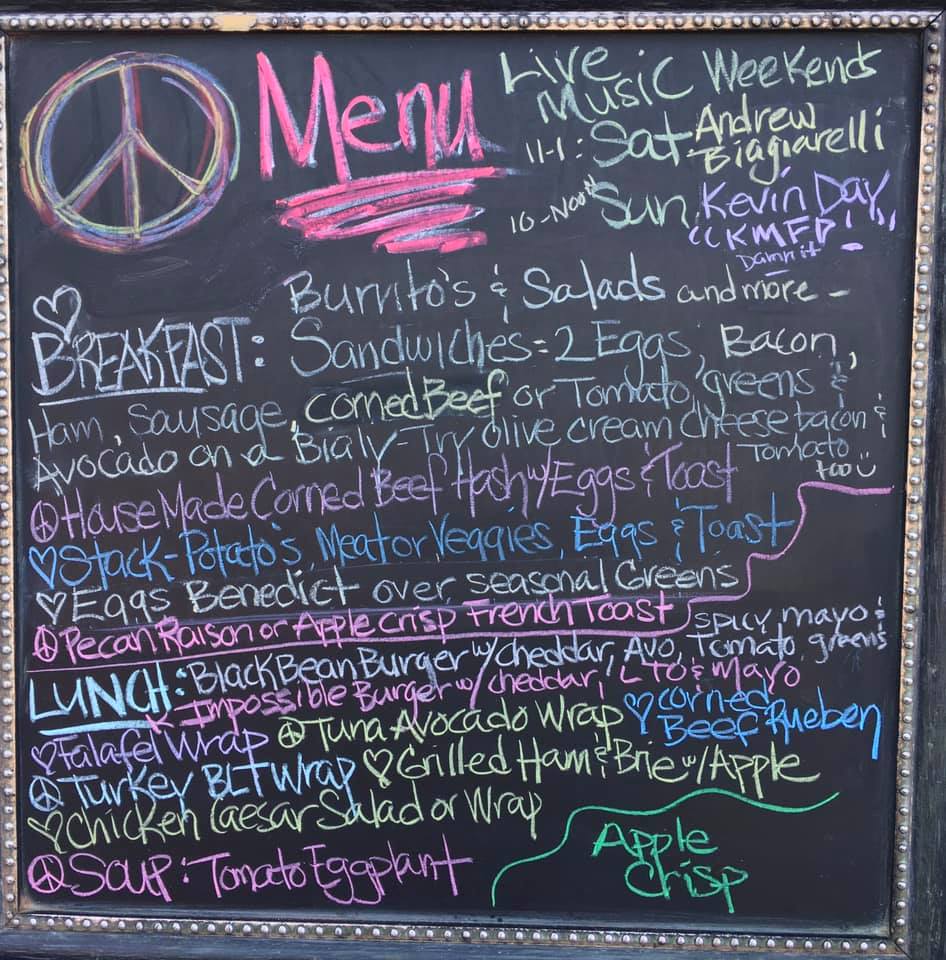 Menu
Live
Music Weekends
11-1: Sat Andrew
Biagiarelli
10-Noon Sun Kevin Day
"KMFD"!
Damnit
Burrito's & Salads and more -
BREAKFAST: Sandwiches = 2 Eggs, Bacon,
Ham, Sausage, corned Beef or Tomato, greens &
Avocado on a Bialy-Try olive cream cheese bacon &
Tomato
too
House Made Corned Beef Hash w/ Eggs & Toast
Stack-Potato's, Meat or Veggies, Eggs & Toast
Eggs Benedict over seasonal Greens
Pecan Raison or Apple crisp French Toast
LUNCH: Black Bean Burger w/ cheddar, Avo, Tomato, greens
spicy mayo &
Impossible Burger w/ cheddar, LTO & Mayo
Falafel Wrap Tuna Avocado Wrap corned
Beef Rueben
Turkey BLT Wrap Grilled Ham & Brie w/ Apple
Chicken Caesar Salad or Wrap
Soup: Tomato Eggplant
Apple
Crisp